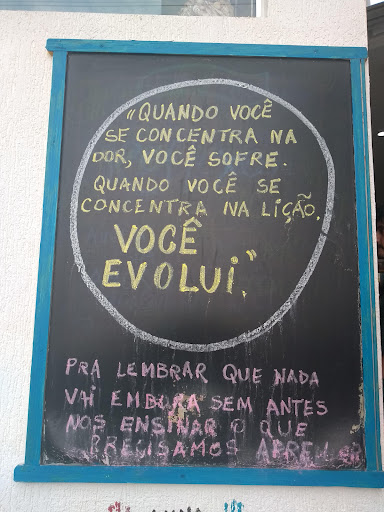 "QUANDO VOCÊ
SE CONCENTRA NA
DOR, VOCÊ SOFRE.
QUANDO VOCÊ SE
CONCENTRA NA LIÇÃO,
VOCÊ
EVOLUI."
PRA LEMBRAR QUE NADA
VAI EMBORA SEM ANTES
NOS ENSINAR O QUE
PRECISAMOS